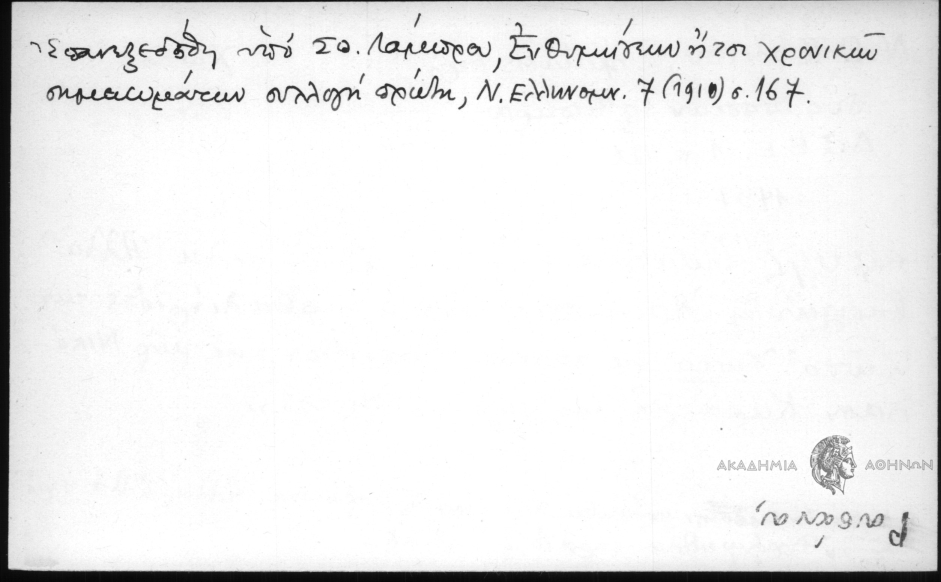 Ἐπανεξεδόθη ὑπό Σπ. Λάμπρου, Ἐνθυμήσεων ἤτοι χρονικῶν
σημειωμάτων συλλογή πρώτη, Ν. Ἑλληνομν. 7 (1910) σ. 167.
ΑΚΑΔΗΜΙΑ ΑΘΗΝΩΝ